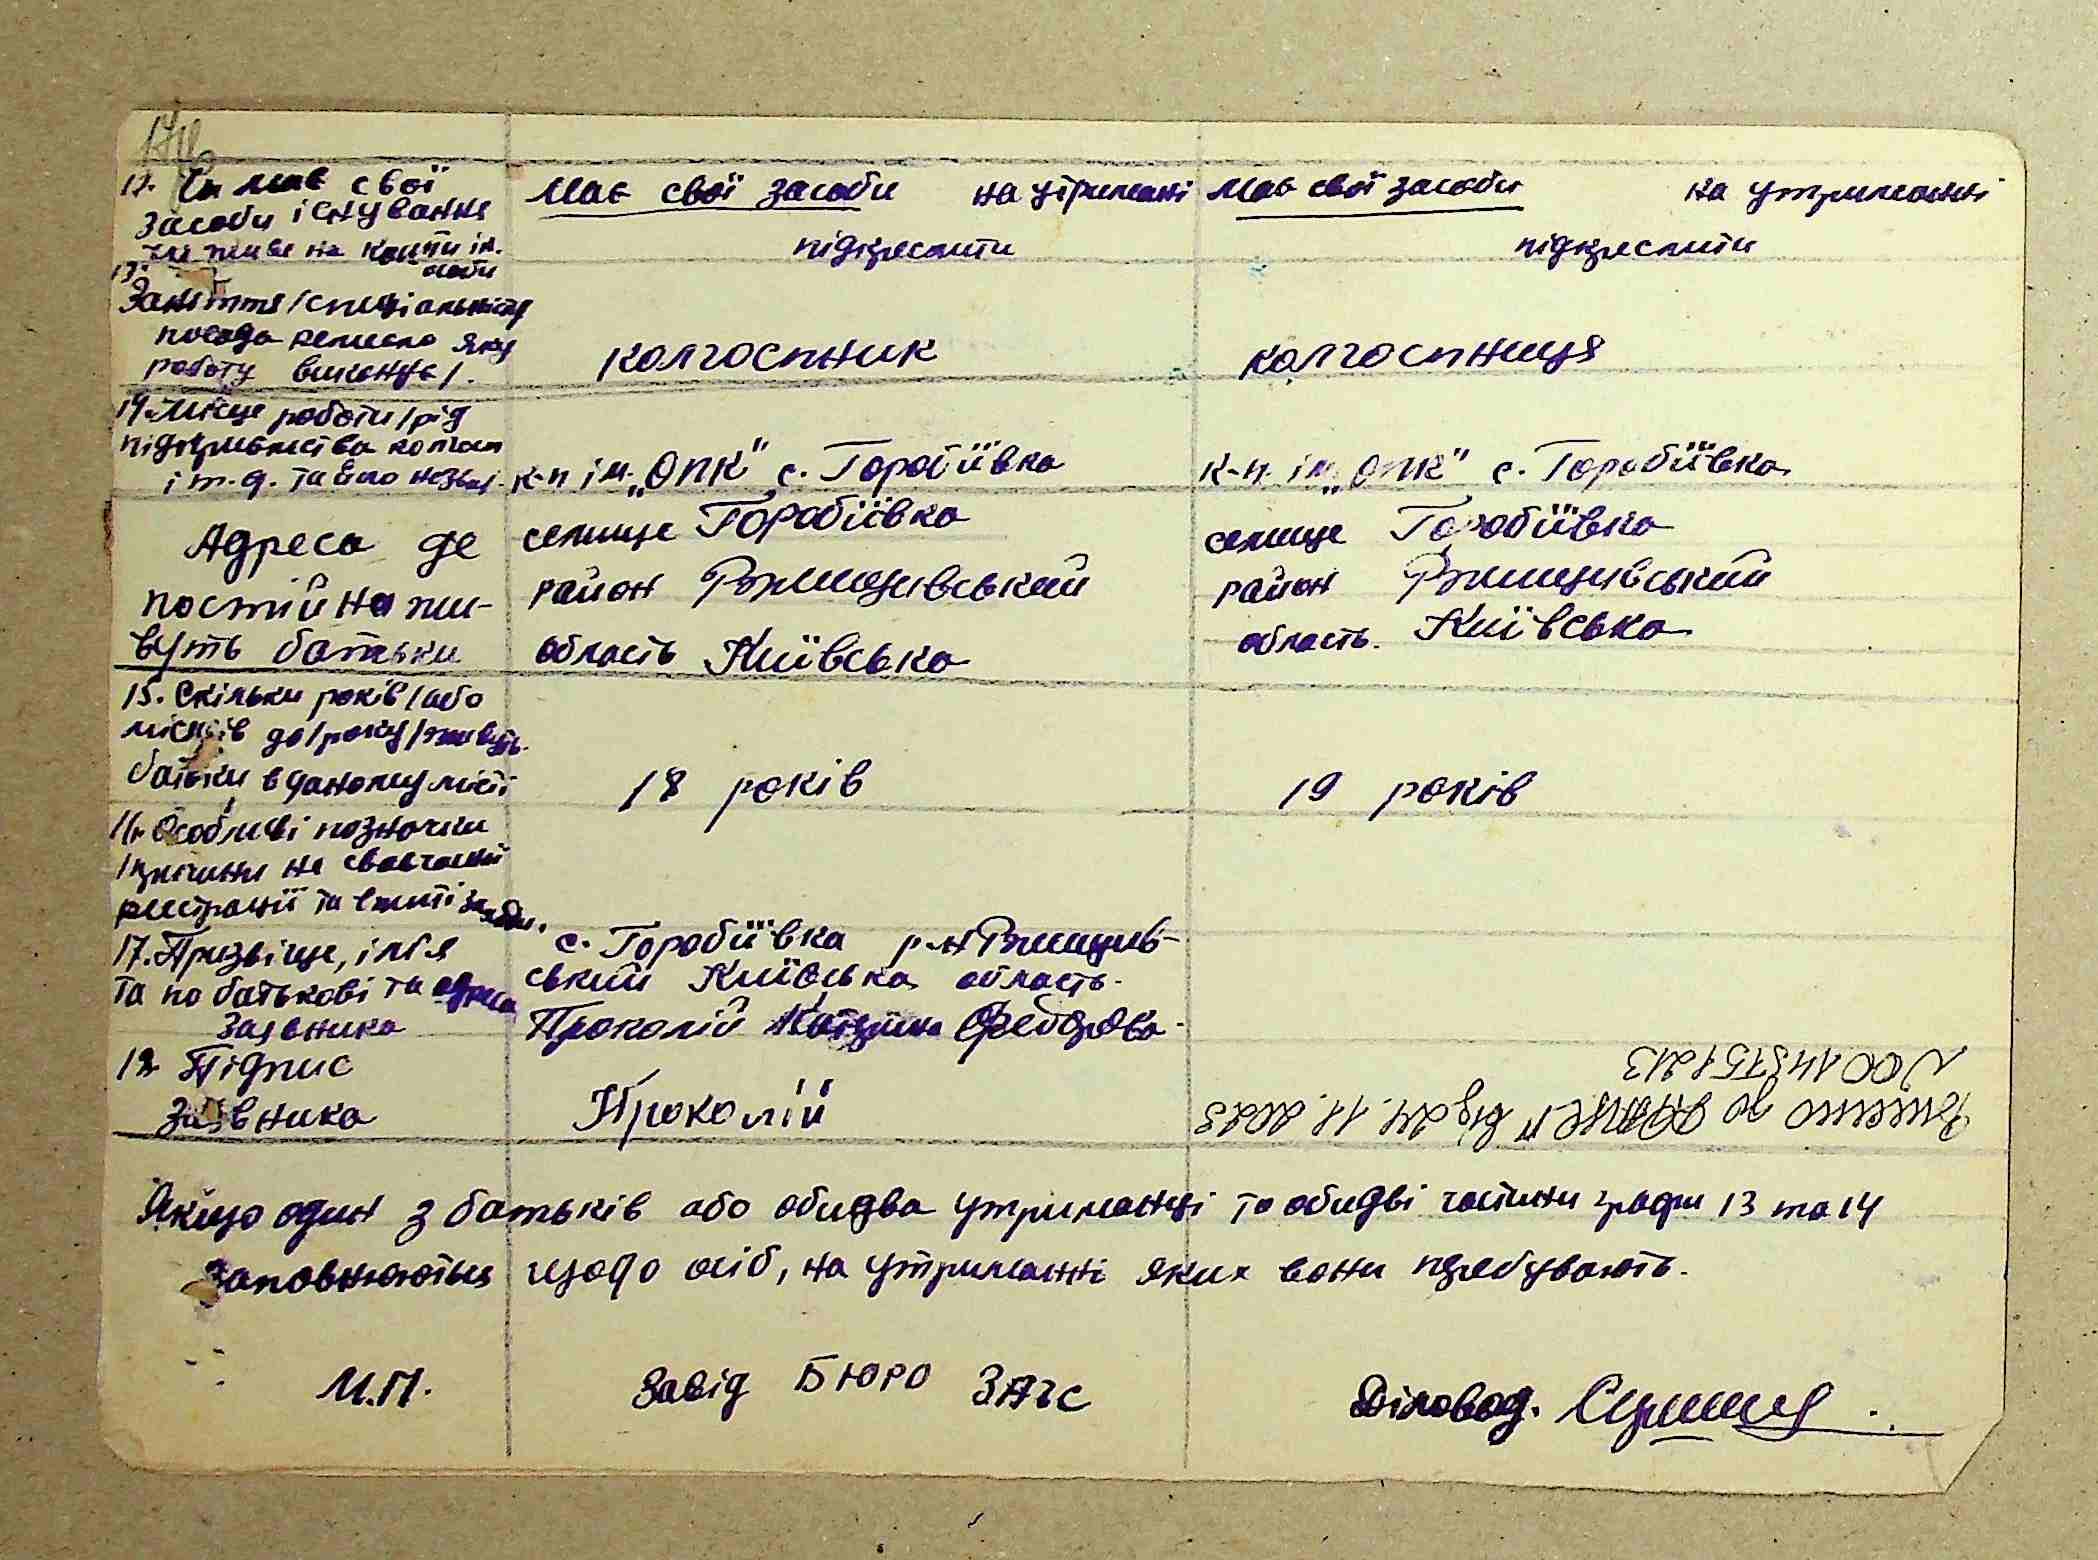 12. Чи має свої
засоби існування
чи живе на кошти ін.
особи
Має свої засоби на утриманні
підкреслити
Має свої засоби на утриманні
підкреслити
13.
Заняття /спеціальність
посада ремесло яку
роботу виконує/.
колгоспник
колгоспниця
14. Місце роботи /рід
підприємства колгосп
і т. д. та його назва/.
к-п ім. „ОПК" с. Горобіївка
к-п. ім. „ОПК" с. Горобіївка
Адреса де
постійно жи-
вуть батьки
селище Горобіївка
район Ржищивський
область Київська
селище Горобіївка
район Ржищивський
область. Київська
15. Скільки років /або
місяців до/року/живуть
батьки в даному місті
18 років
19 років
16. Особливі позначки
/причини не своєчасної
реєстрації та вжиті заходи.
17. Прізвіще, імя
та по батькові та адреса
Заявника
с. Горобіївка р-н Ржищив-
ський Київська область.
Проколій Федорова
18 Підпис
Заявника
Проколій
Внесено до ДРАЦС від 24. 11. 2023
N 00148751213
Якщо один з батьків або обидва утриманці то обидві частини графи 13 та 14
заповнюються щодо осіб, на утриманні яких вони перебувають.
М.П. Завід БЮРО ЗАГС Діловод.